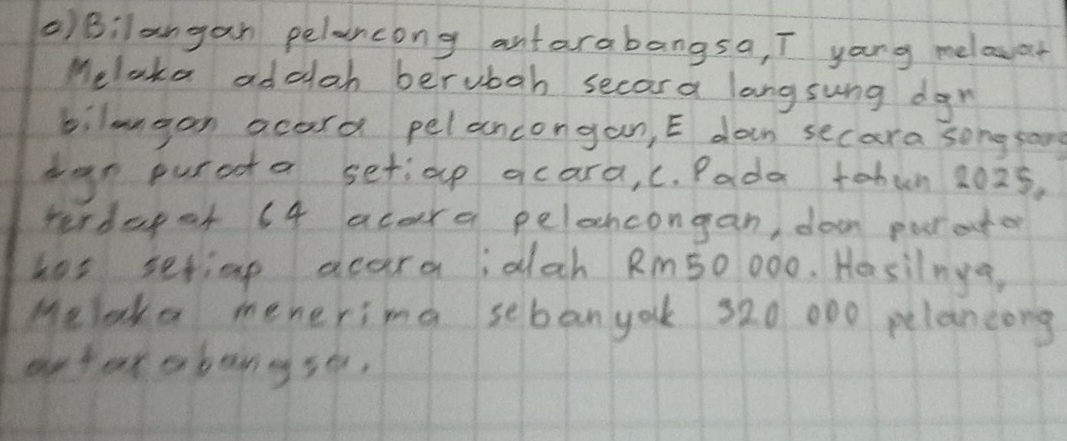 a) Bilangan pelancong antarabangsa, T yang melawat
Melaka adalah berubah secara langsung dgn
bilangan acara pelancongan, E dan secara songsang
dgn purata setiap acara, C. Pada tahun 2025,
terdapat 64 acara pelancongan, dan purata
kos setiap acara ialah RM50 000. Hasilnya,
Melaka menerima sebanyak 320 000 pelancong
antarabangsa.